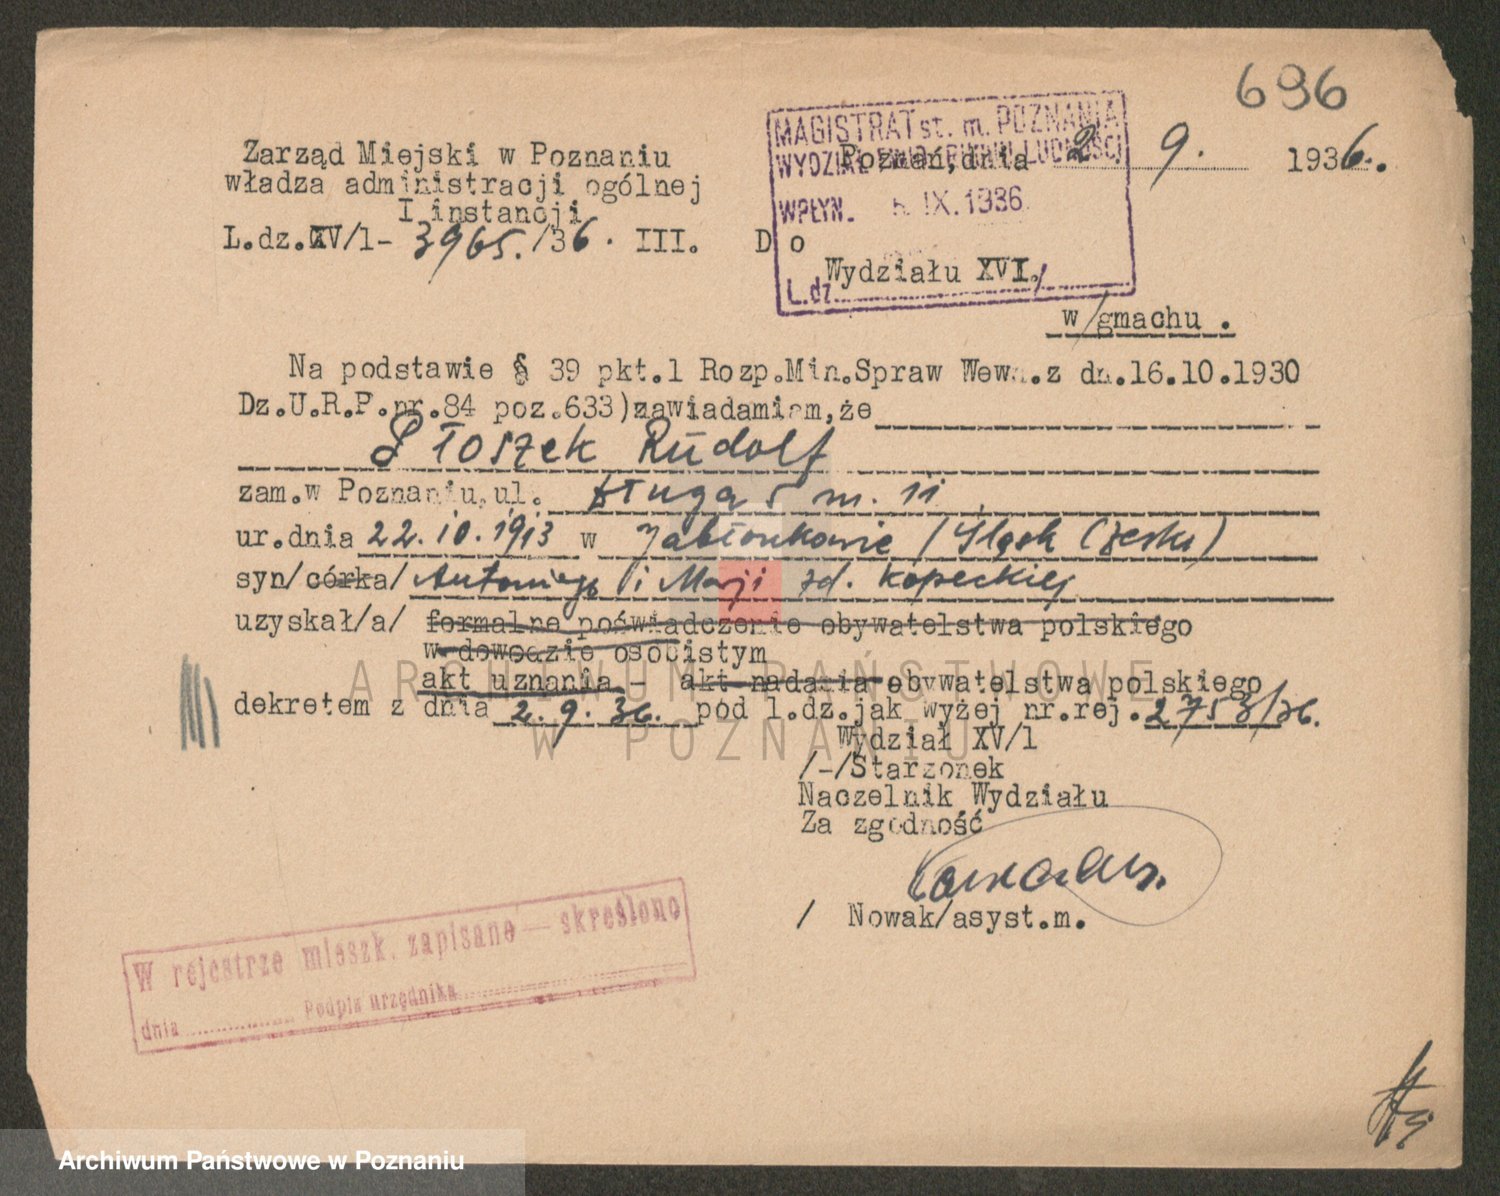 696
MAGISTRAT st. m. POZNANIA
WYDZIAŁ EWIDENCJI LUDNOŚCI
WPŁYN. 5. IX. 1936
L.dz.
Zarząd Miejski w Poznaniu
władza administracji ogólnej
I instancji
L.dz.XV/1- 3965./36. III.
Poznań, dnia 2 9. 1936.
Do
Wydziału XVI.
w/gmachu .
Na podstawie § 39 pkt.1 Rozp.Min.Spraw Wewn.z dn.16.10.1930
Dz.U.R.P.nr.84 poz.633)zawiadamiam,że
Słoszek Rudolf
zam.w Poznaniu,ul. Długa 5 m. 11
ur.dnia 22.10.1913 w Jabłonkowie / Śląsk Czeski)
syn/córka/ Antoniego i Marji zd. Kopeckiej
uzyskał/a/ formalne poświadczenie obywatelstwa polskiego
w dowodzie osobistym
akt uznania - akt nadania obywatelstwa polskiego
dekretem z dnia 2. 9. 36. pod l.dz.jak wyżej nr.rej. 2753/36.
Wydział XV/1
/-/Starzonek
Naczelnik Wydziału
Za zgodność
/ Nowak/asyst.m.
W rejestrze mieszk. zapisano — skreślono
dnia Podpis urzędnika
ARCHIWUM PAŃSTWOWE
W POZNANIU
Archiwum Państwowe w Poznaniu